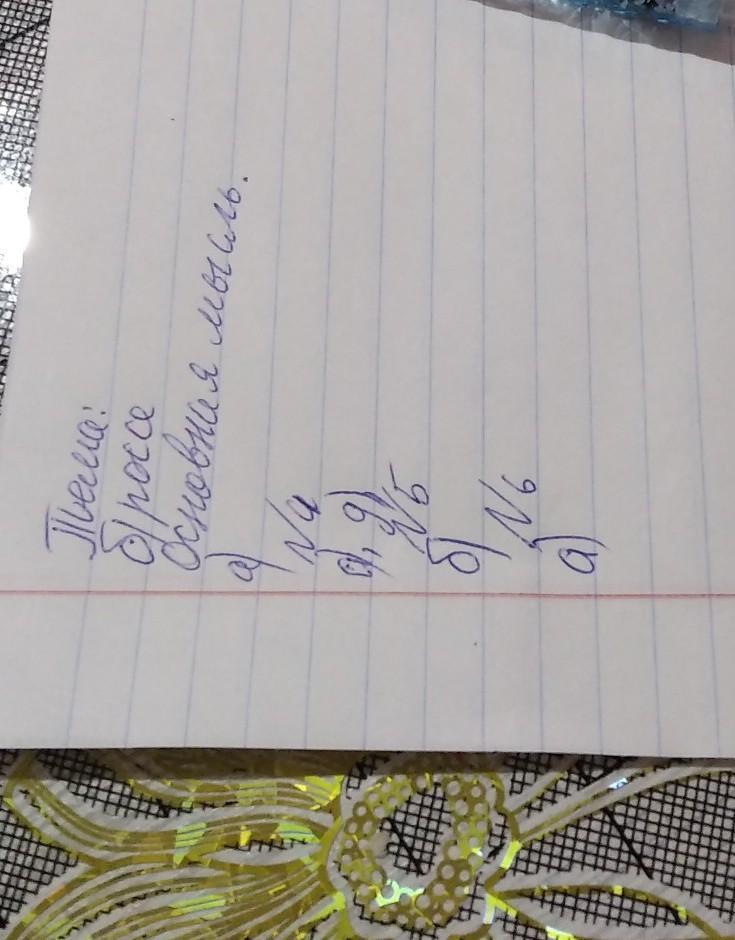 Тема:
б) росе
Основная мысль.
а)
№4
а), д)
№5
б)
№6
а)